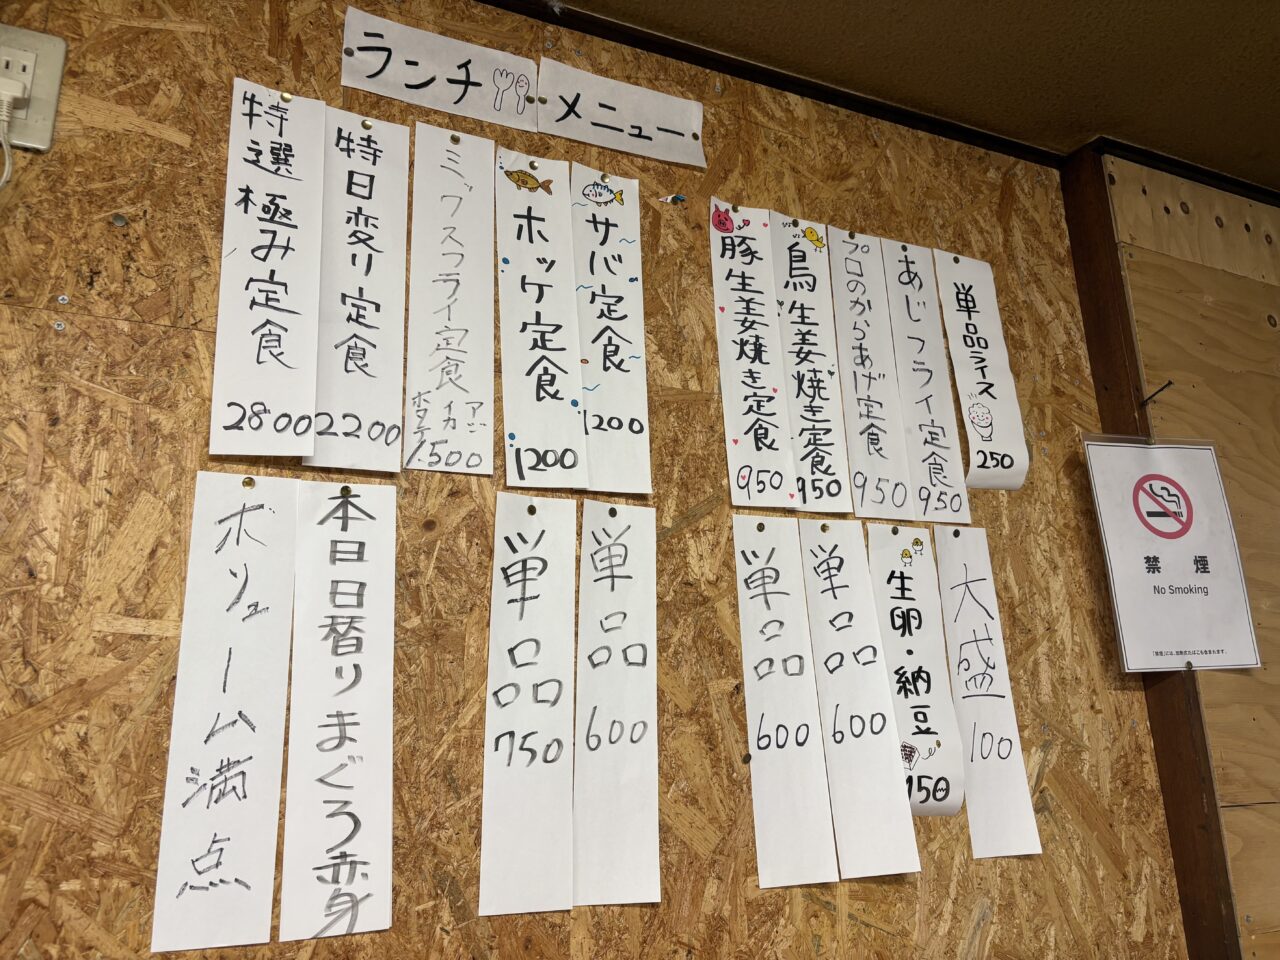 ランチ メニュー
特選極み定食
2800
特日変り定食
2200
ミックスフライ定食
アジ
イカ
ホタテ
1.500
ホッケ定食
1200
サバ定食
1200
豚生姜焼き定食
950
鳥生姜焼き定食
950
プロのからあげ定食
950
あじフライ定食
950
単品ライス
250
ボリューム満点
本日日替りまぐろ赤身
単品
750
単品
600
単品
600
単品
600
生卵・納豆
150
大盛
100
禁煙
No Smoking